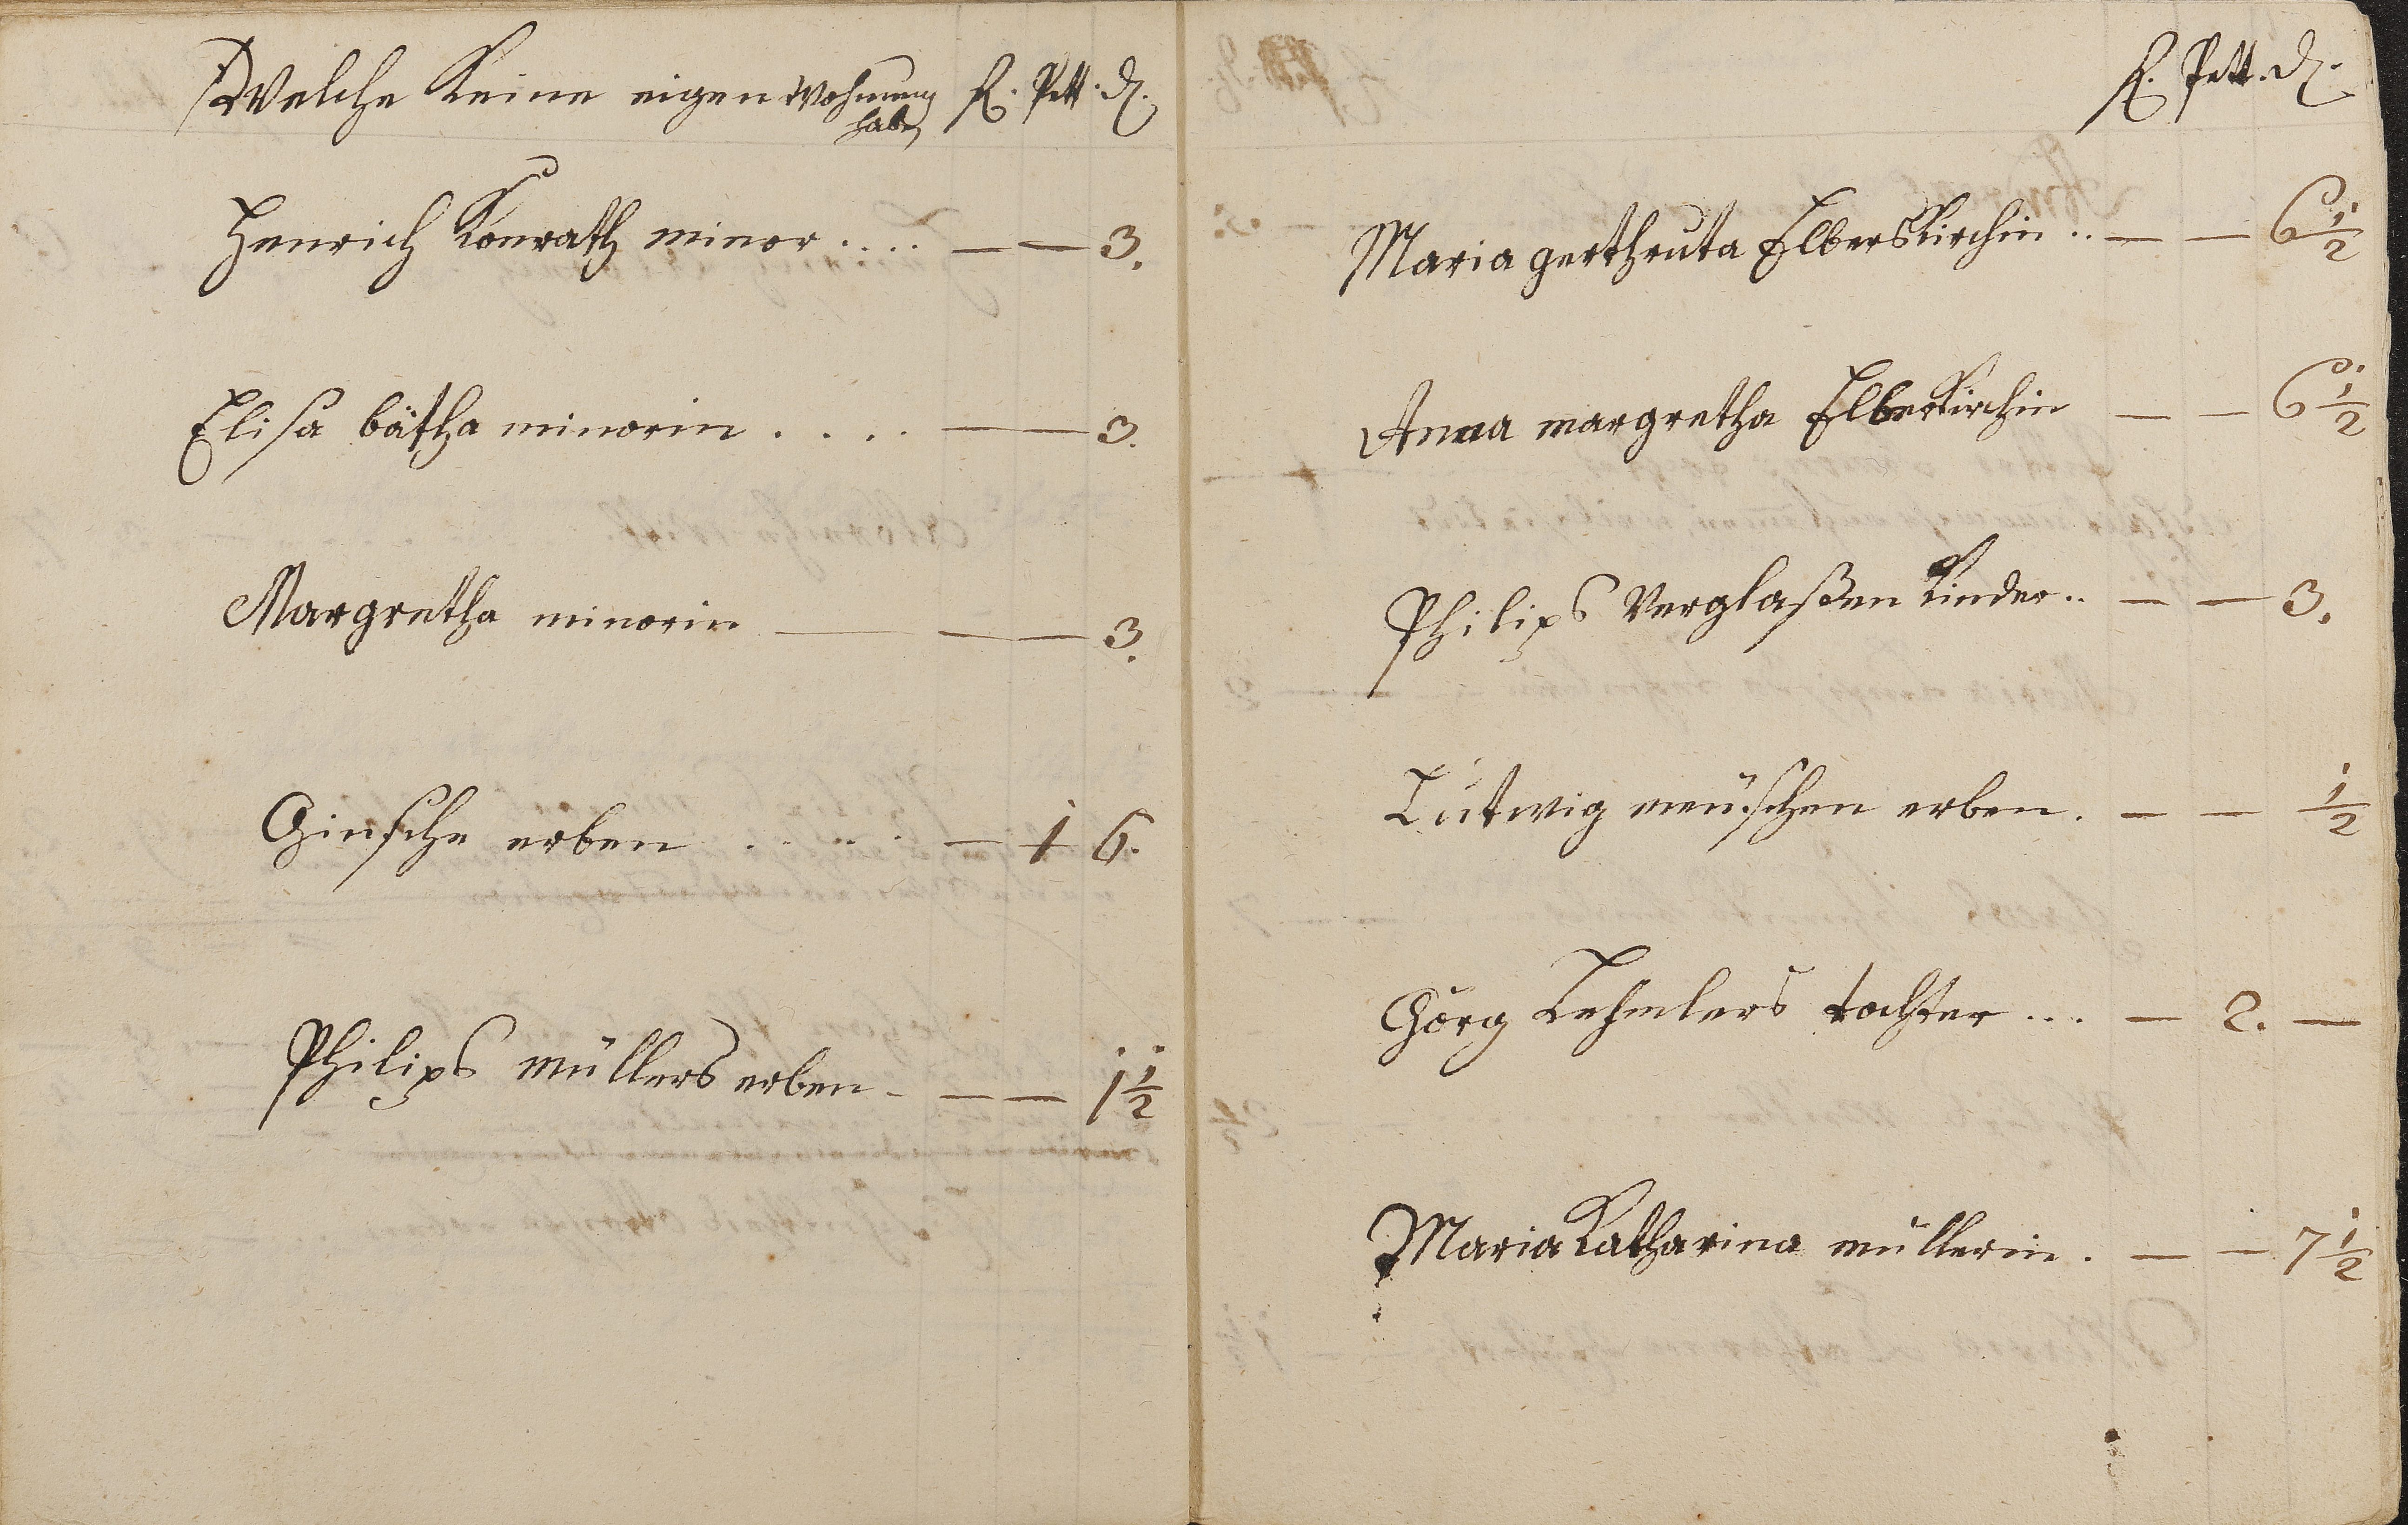 Welche Keine eigen Wohnung fl. Pett. d.
haben
Henrich Konrath minor .... — — 3.
Elisa bätha minorin .... — — 3.
Margretha minorin — — — 3.
Ginsche erben ..... — 1 6.
Philips müllers erben - — — 1 1/2
fl. Pett. d.
Maria gerthruta Elberskirchin .. — — 6 1/2
Anna margretha Elberkirchin — — 6 1/2
Philips Verglaßen Kinder .. — — 3.
Lutwig meüschen erben. — — 1/2
Görg Lehmlers tochter ... — 2. —
Maria Katharina müllerin. — — 7 1/2